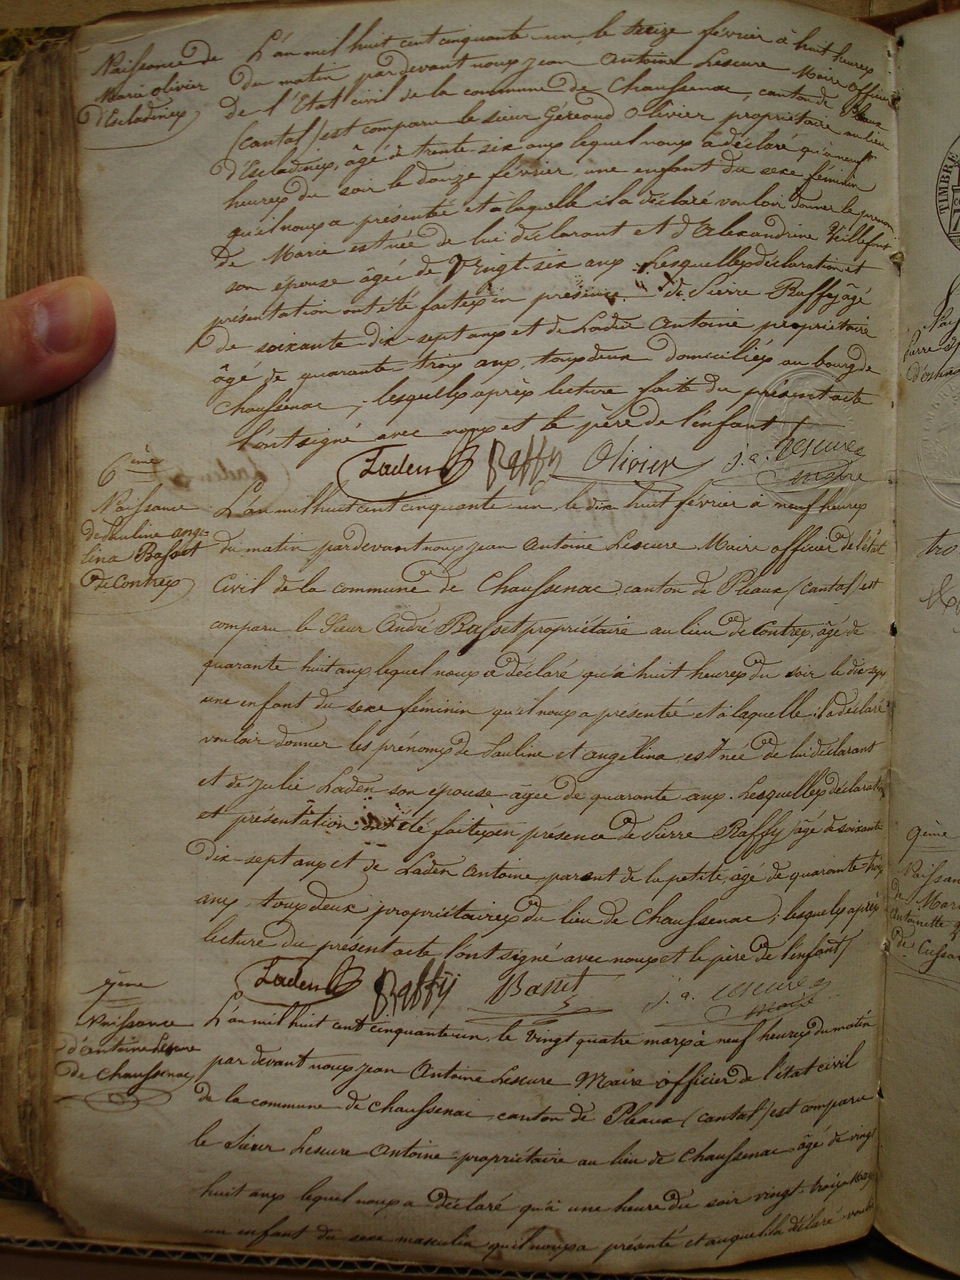 Naissance de
Marie Olivier
d'Escladines
L'an mil huit cent cinquante un, le treize février à huit heures
du matin pardevant nous jean Antoine Lescure Maire officier
de l'Etat civil de la commune de Chaussenac, canton de Pleaux
(cantal) est comparu le sieur Géraud Olivier propriétaire au lieu
d'Escladines, âgé de trente six ans lequel nous a déclaré qu'à neuf
heures du soir le douze février, une enfant du sexe féminin
qu'il nous a présentée et à laquelle il a déclaré vouloir donner le prénom
de Marie est née de lui déclarant et d'Alexandrine Veillefont
son épouse âgée de Vingt-six ans. Lesquelles déclaration et
présentation ont été faites en présence de Pierre Raffy âgé
de soixante dix-sept ans et de Laden Antoine propriétaire
âgé de quarante trois ans, tous deux domiciliés au bourg de
Chaussenac, lesquels après lecture faite du présent acte
l'ont signé avec nous et le père de l'enfant
Laden Raffy Olivier j. a. Lescure
maire
6ème
Naissance
de Pauline angé-
lina Basset
de Contres
L'an mil huit cent cinquante un, le dix huit février à neuf heures
du matin pardevant nous jean Antoine Lescure Maire officier de l'état
Civil de la commune de Chaussenac, canton de Pleaux (cantal) est
comparu le Sieur André Basset propriétaire au lieu de Contres, âgé de
quarante huit ans lequel nous a déclaré qu'à huit heures du soir le dix-sept
une enfant du sexe féminin qu'il nous a présentée et à laquelle il a déclaré
vouloir donner les prénoms de Pauline et angélina est née de lui déclarant
et de julie Laden son épouse âgée de quarante ans. Lesquelles déclaration
et présentation ont été faites en présence de Pierre Raffy âgé de soixante
dix-sept ans et de Laden Antoine parent de la petite, agé de quarante-trois
ans, tous deux propriétaires du lieu de Chaussenac; lesquels après
lecture du présent acte l'ont signé avec nous et le père de l'enfant
Laden Raffy Basset j. a. Lescure
maire
7ème
Naissance
d'antoine Lescure
de Chaussenac
L'an mil huit cent cinquante un, le vingt quatre mars à neuf heures du matin
par devant nous jean Antoine Lescure Maire officier de l'état civil
de la commune de Chaussenac canton de Pleaux (cantal) est comparu
le Sieur Lescure Antoine propriétaire au lieu de Chaussenac âgé de vingt
huit ans lequel nous a déclaré qu'à une heure du soir vingt-trois mars
un enfant du sexe masculin qu'il nous a présenté et auquel il a déclaré vouloir
TIMBRE
9ème
Naissan
de Mari
antoinette
de Cussa